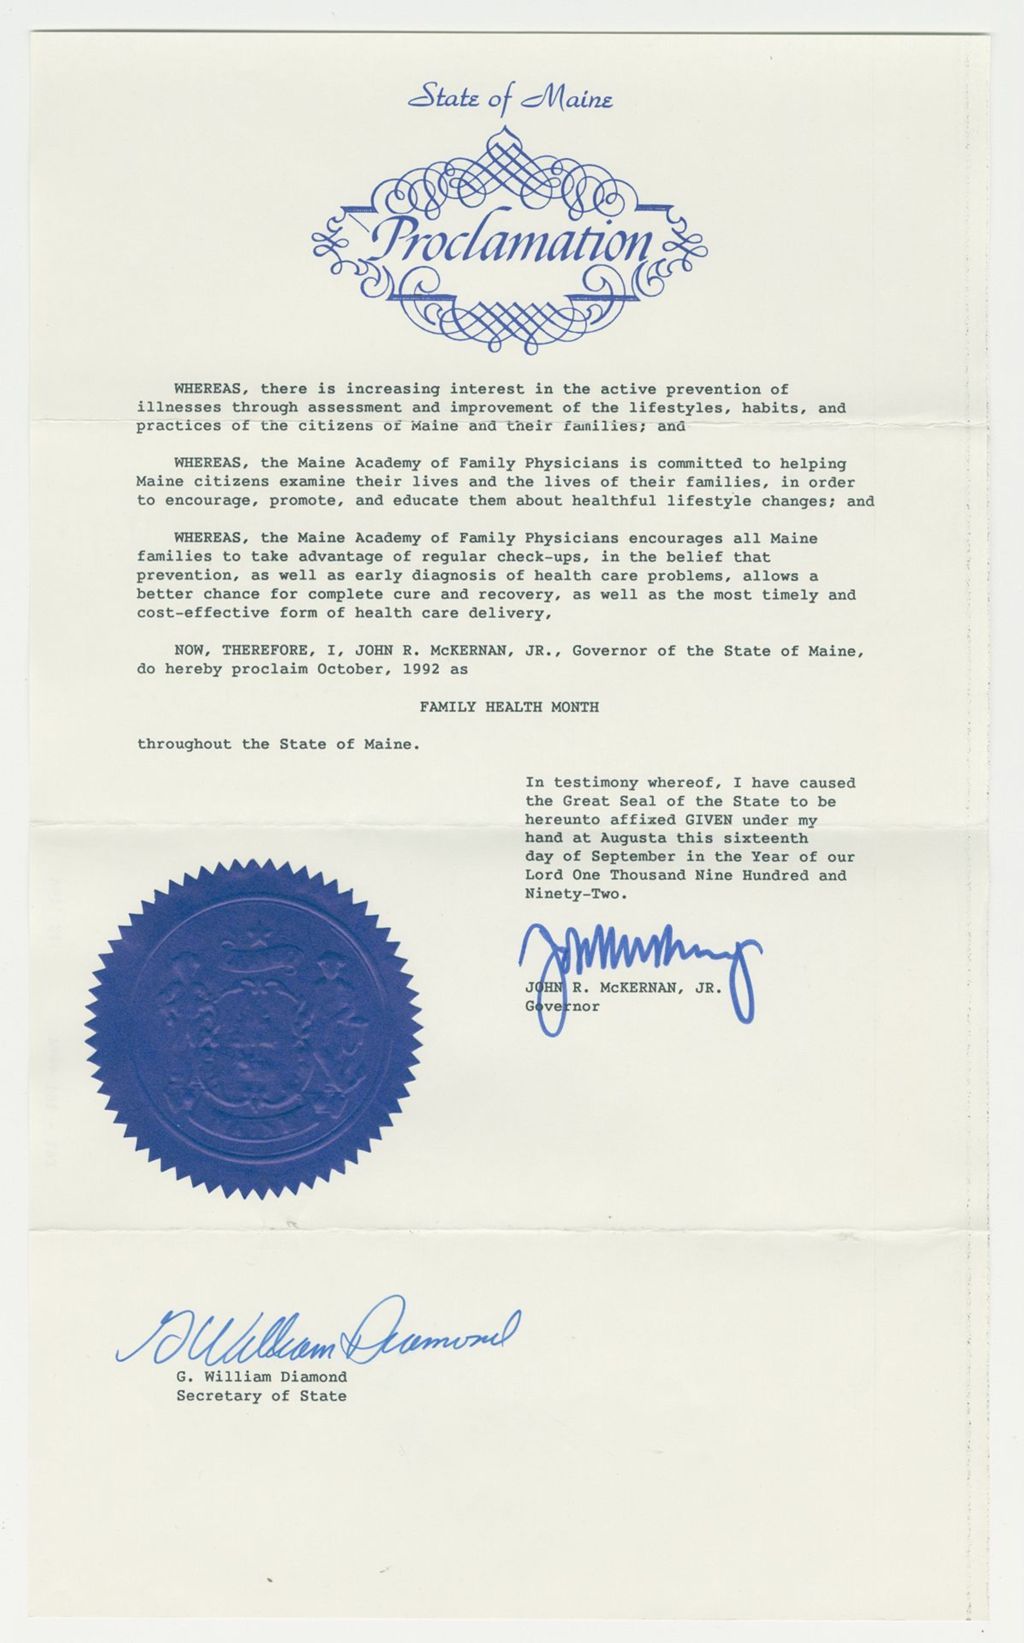 State of Maine
Proclamation
WHEREAS, there is increasing interest in the active prevention of
illnesses through assessment and improvement of the lifestyles, habits, and
practices of the citizens of Maine and their families; and
WHEREAS, the Maine Academy of Family Physicians is committed to helping
Maine citizens examine their lives and the lives of their families, in order
to encourage, promote, and educate them about healthful lifestyle changes; and
WHEREAS, the Maine Academy of Family Physicians encourages all Maine
families to take advantage of regular check-ups, in the belief that
prevention, as well as early diagnosis of health care problems, allows a
better chance for complete cure and recovery, as well as the most timely and
cost-effective form of health care delivery,
NOW, THEREFORE, I, JOHN R. McKERNAN, JR., Governor of the State of Maine,
do hereby proclaim October, 1992 as
FAMILY HEALTH MONTH
throughout the State of Maine.
In testimony whereof, I have caused
the Great Seal of the State to be
hereunto affixed GIVEN under my
hand at Augusta this sixteenth
day of September in the Year of our
Lord One Thousand Nine Hundred and
Ninety-Two.
JOHN R. McKERNAN, JR.
Governor
MAINE
G William Diamond
G. William Diamond
Secretary of State